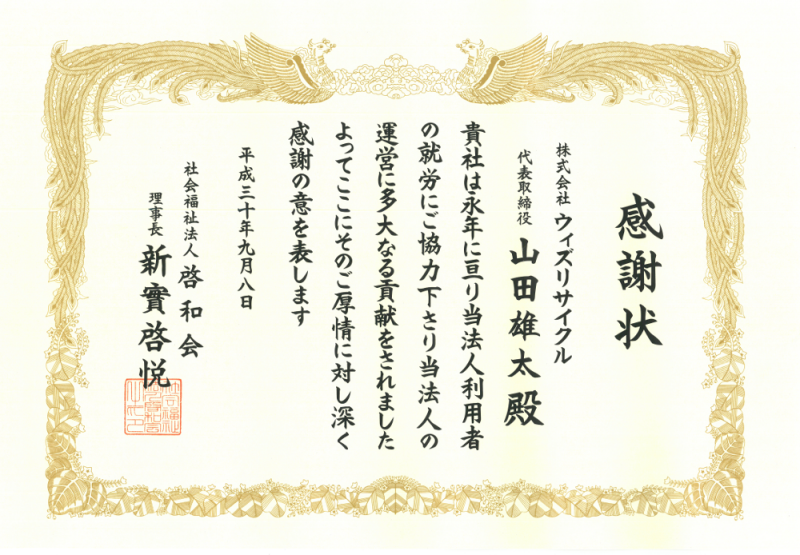 感謝状
株式会社 ウィズリサイクル
代表取締役 山田雄太殿
貴社は永年に亘り当法人利用者
の就労にご協力下さり当法人の
運営に多大なる貢献をされました
よってここにそのご厚情に対し深く
感謝の意を表します
平成三十年九月八日
社会福祉法人 啓和会
理事長 新實啓悦